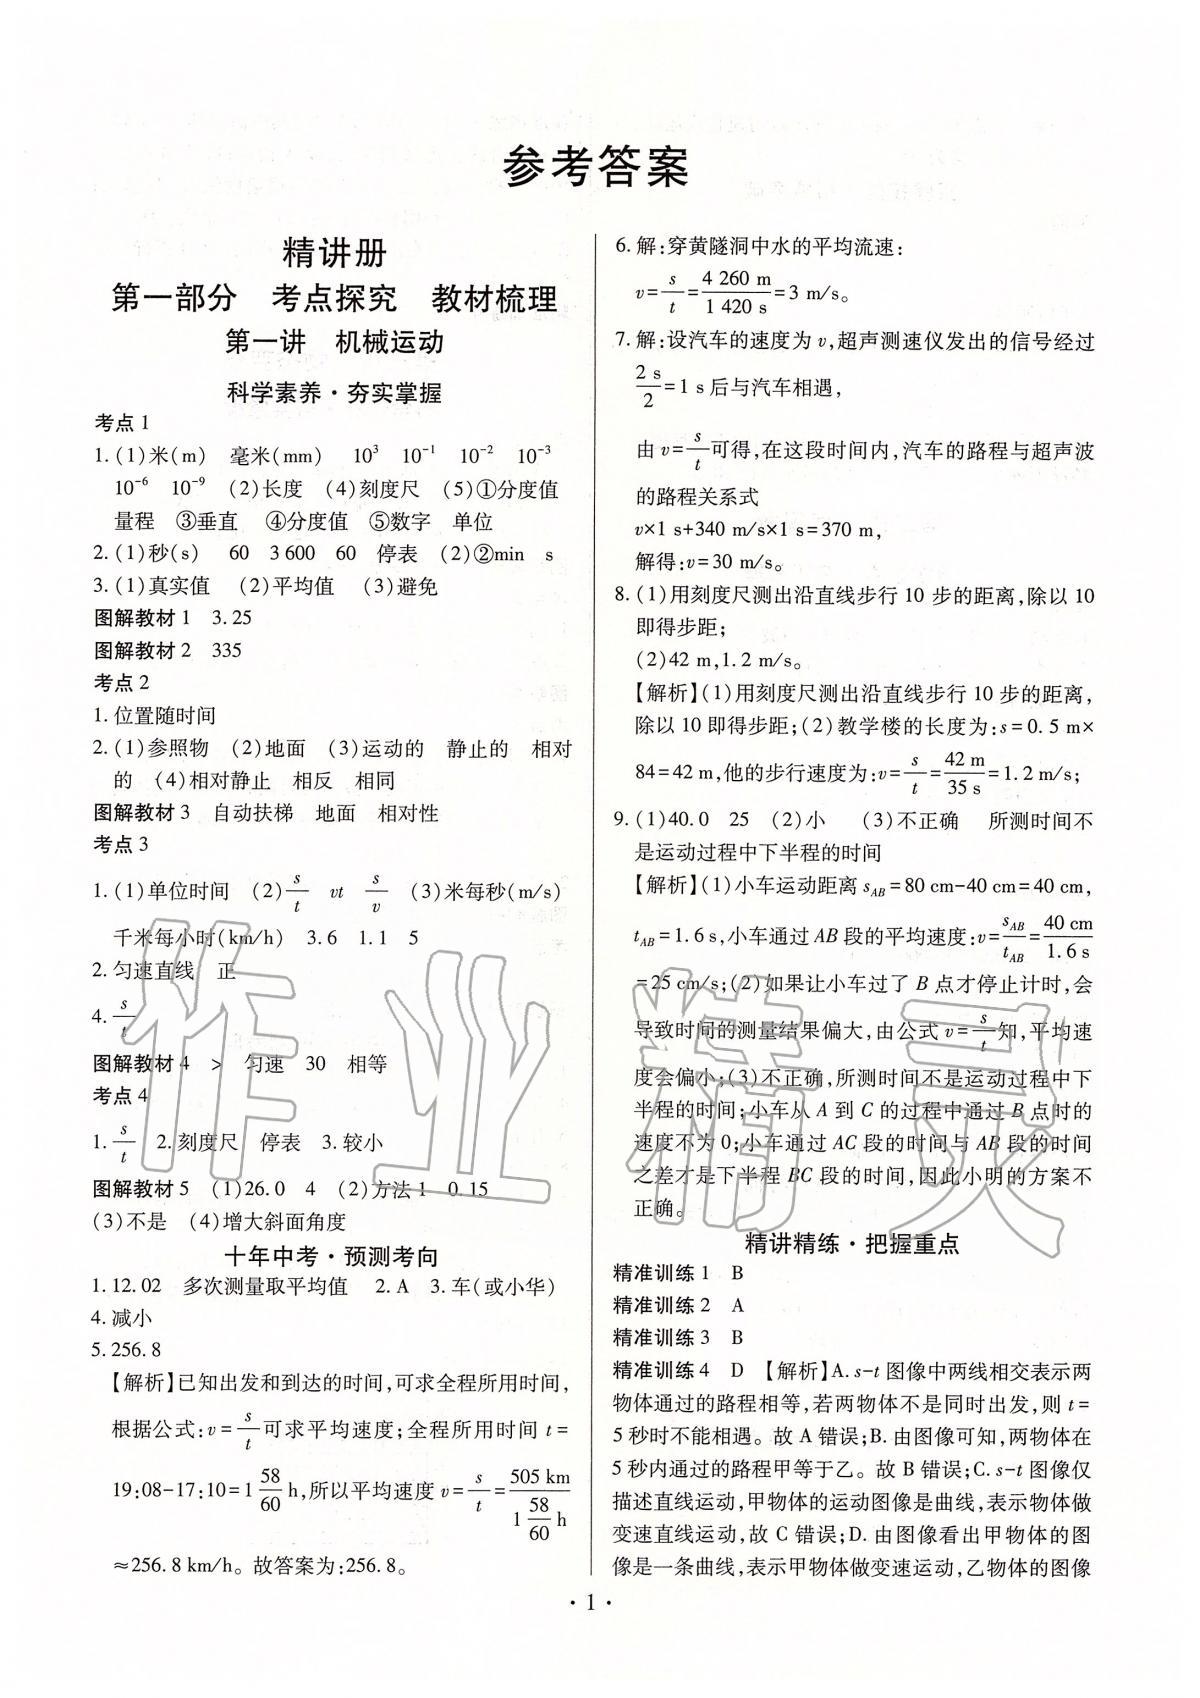 参考答案
精讲册
第一部分　考点探究　教材梳理
第一讲　机械运动
科学素养·夯实掌握
考点 1
1. (1)米(m)　毫米(mm)　10³　10⁻¹　10⁻²　10⁻³
10⁻⁶　10⁻⁹　(2)长度　(4)刻度尺　(5)①分度值
量程　③垂直　④分度值　⑤数字　单位
2. (1)秒(s)　60　3 600　60　停表　(2)②min　s
3. (1)真实值　(2)平均值　(3)避免
图解教材 1　3.25
图解教材 2　335
考点 2
1. 位置随时间
2. (1)参照物　(2)地面　(3)运动的　静止的　相对
的　(4)相对静止　相反　相同
图解教材 3　自动扶梯　地面　相对性
考点 3
1. (1)单位时间　(2)s/t　vt　s/v　(3)米每秒(m/s)
千米每小时(km/h)　3.6　1.1　5
2. 匀速直线　正
4. s/t
图解教材 4　>　匀速　30　相等
考点 4
1. s/t　2. 刻度尺　停表　3. 较小
图解教材 5　(1)26.0　4　(2)方法 1　0.15
(3)不是　(4)增大斜面角度
十年中考·预测考向
1. 12.02　多次测量取平均值　2. A　3. 车(或小华)
4. 减小
5. 256.8
【解析】已知出发和到达的时间,可求全程所用时间,
根据公式:v=s/t可求平均速度;全程所用时间 t=
19:08-17:10=1 58/60 h,所以平均速度 v=s/t=505 km/(1 58/60 h)
≈256.8 km/h。故答案为:256.8。
6. 解:穿黄隧洞中水的平均流速:
v=s/t=4 260 m/1 420 s=3 m/s。
7. 解:设汽车的速度为 v,超声测速仪发出的信号经过
2 s/2=1 s 后与汽车相遇,
由 v=s/t可得,在这段时间内,汽车的路程与超声波
的路程关系式
v×1 s+340 m/s×1 s=370 m,
解得:v=30 m/s。
8. (1)用刻度尺测出沿直线步行 10 步的距离,除以 10
即得步距;
(2)42 m,1.2 m/s。
【解析】(1)用刻度尺测出沿直线步行 10 步的距离,
除以 10 即得步距;(2)教学楼的长度为:s=0.5 m×
84=42 m,他的步行速度为:v=s/t=42 m/35 s=1.2 m/s;
9. (1)40.0　25　(2)小　(3)不正确　所测时间不
是运动过程中下半程的时间
【解析】(1)小车运动距离 s_AB=80 cm-40 cm=40 cm,
t_AB=1.6 s,小车通过 AB 段的平均速度:v=s_AB/t_AB=40 cm/1.6 s
=25 cm/s;(2)如果让小车过了 B 点才停止计时,会
导致时间的测量结果偏大,由公式 v=s/t知,平均速
度会偏小;(3)不正确,所测时间不是运动过程中下
半程的时间;小车从 A 到 C 的过程中通过 B 点时的
速度不为 0;小车通过 AC 段的时间与 AB 段的时间
之差才是下半程 BC 段的时间,因此小明的方案不
正确。
精讲精练·把握重点
精准训练 1　B
精准训练 2　A
精准训练 3　B
精准训练 4　D　【解析】A. s-t 图像中两线相交表示两
物体通过的路程相等,若两物体不是同时出发,则 t=
5 秒时不能相遇。故 A 错误;B. 由图像可知,两物体在
5 秒内通过的路程甲等于乙。故 B 错误;C. s-t 图像仅
描述直线运动,甲物体的运动图像是曲线,表示物体做
变速直线运动,故 C 错误;D. 由图像看出甲物体的图
像是一条曲线,表示甲物体做变速运动,乙物体的图像
· 1 ·
作业精灵